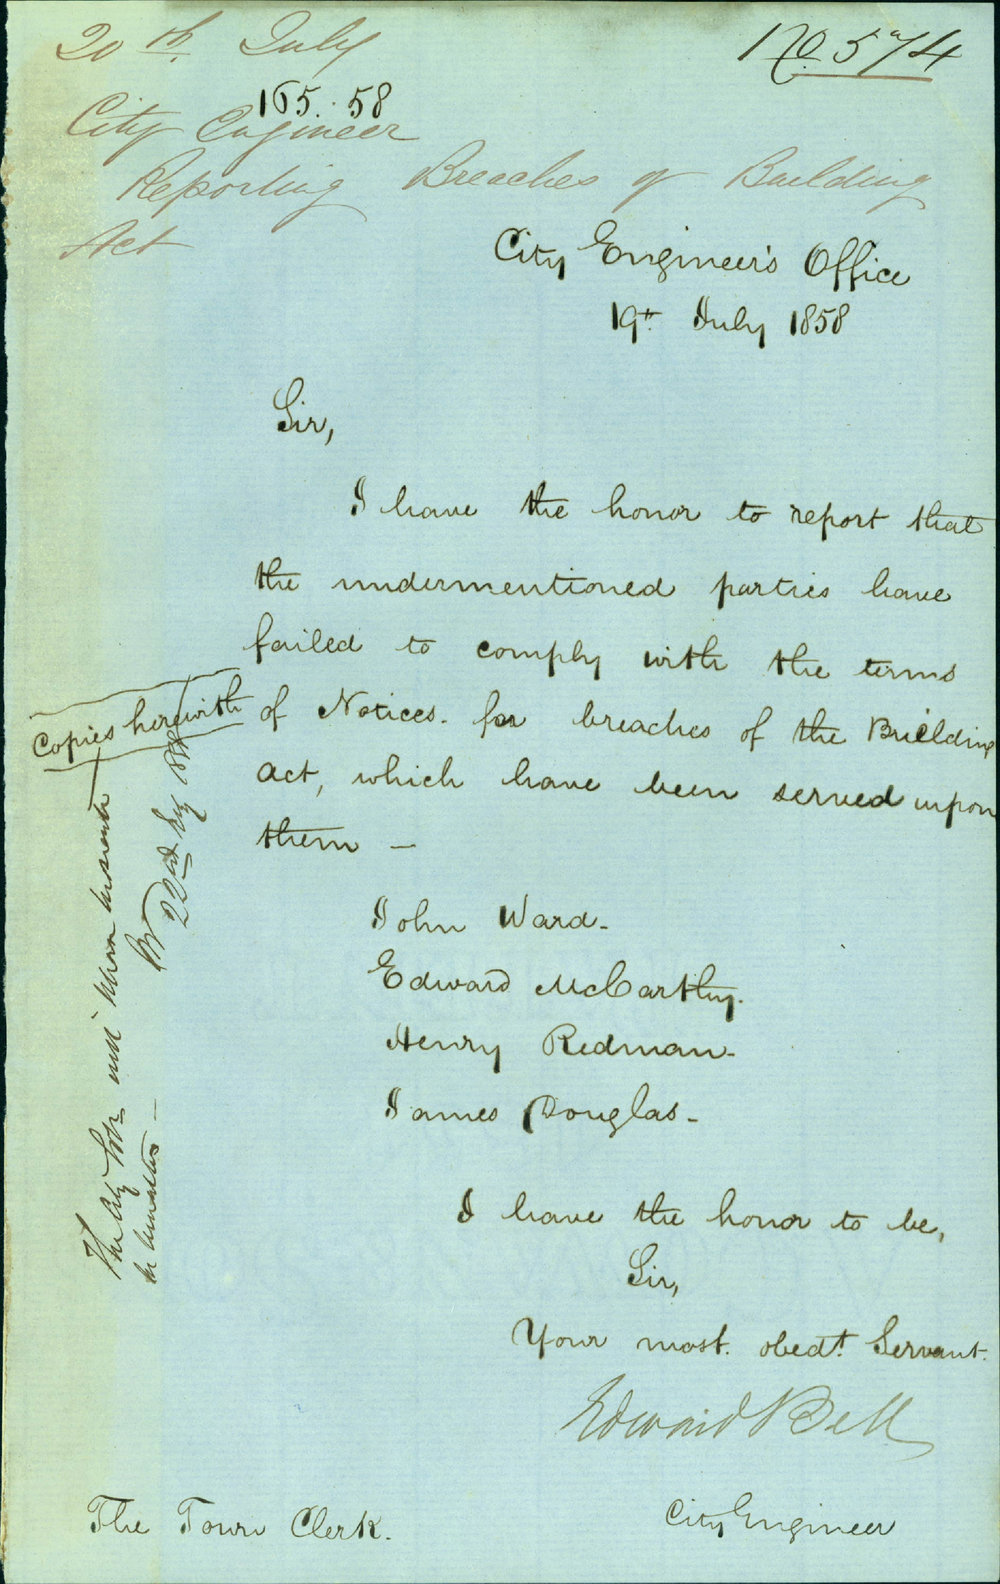 20th July
No 574
165.58
City Engineer
Reporting Breaches of Building
Act
City Engineer's Office
19th July 1858
Sir,
I have the honor to report that
the undermentioned parties have
failed to comply with the terms
of Notices. for breaches of the Building
Act, which have been served upon
them —
Copies herewith
The City will
22nd July
John Ward-
Edward McCarthy.
Henry Redman-
James Douglas-
I have the honor to be,
Sir,
Your most. obedt. Servant.
Edward Bell
City Engineer
The Town Clerk.